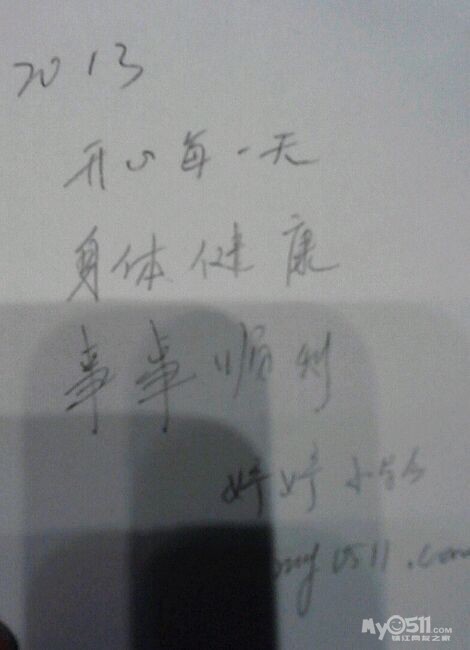 2013
开心每一天
身体健康
事事顺利
婷婷小
my0511.com
My0511.COM
镇江网友之家